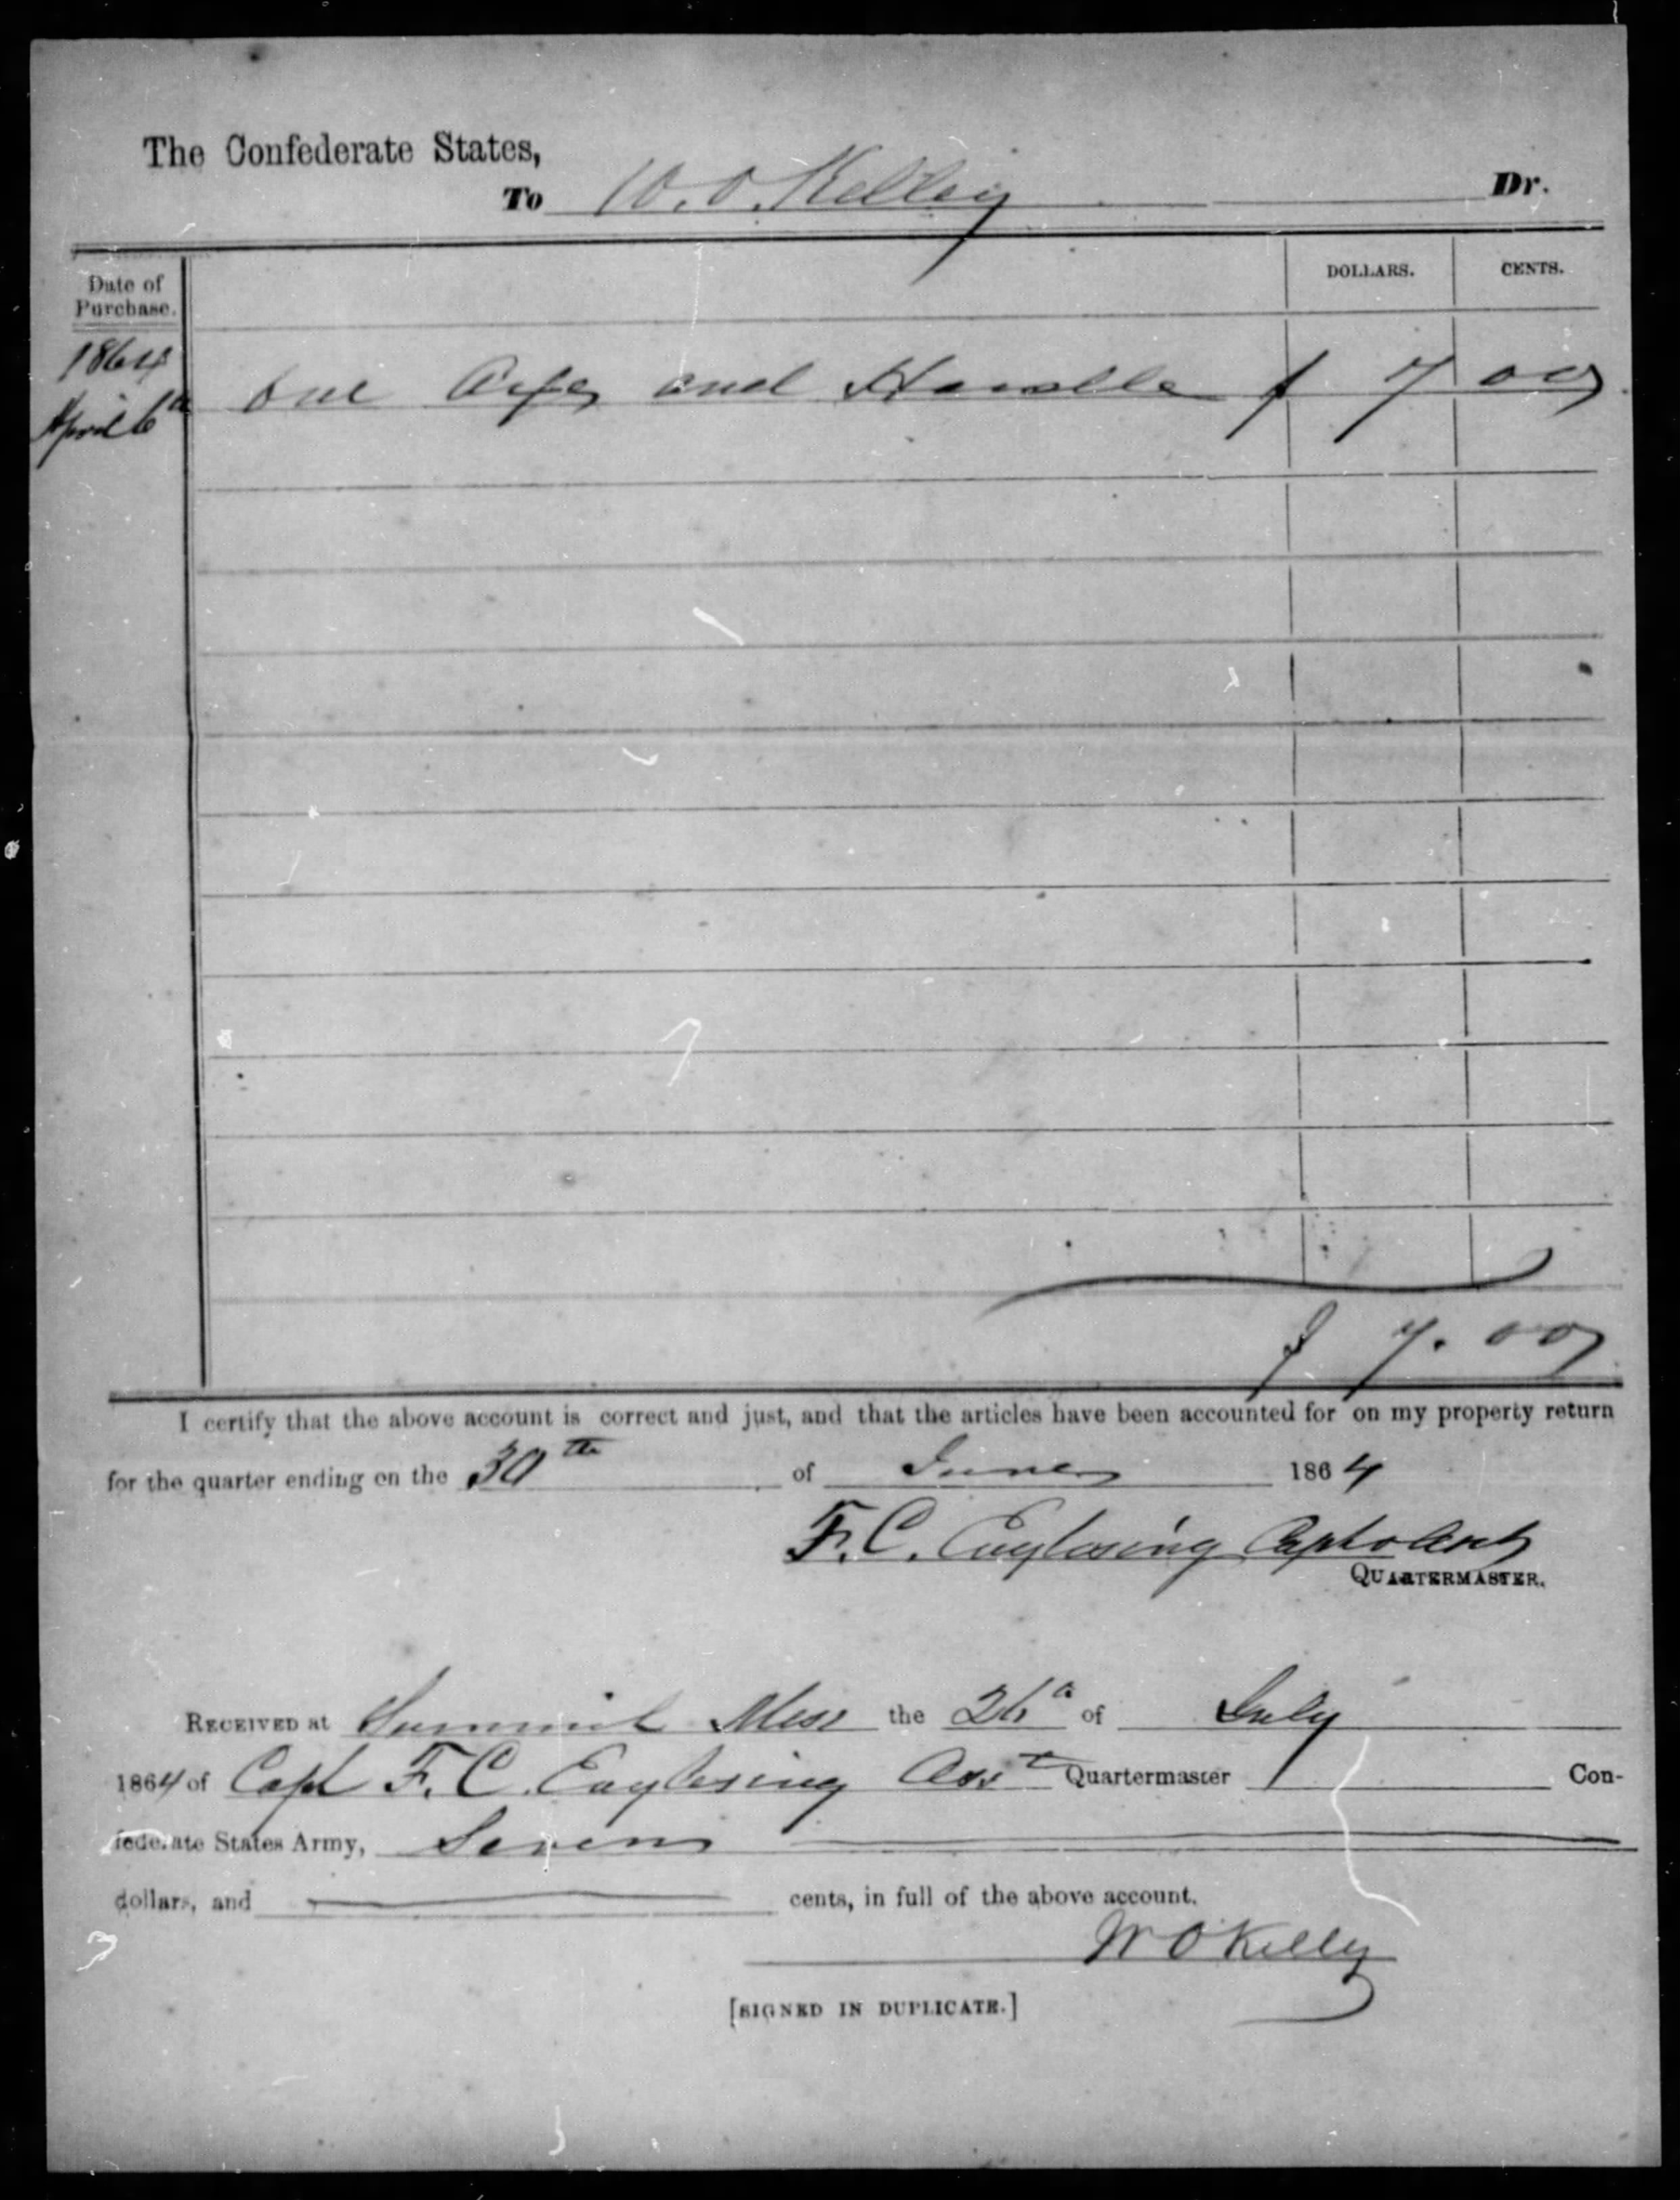 The Confederate States,
To W. O. Kelley Dr.
Date of Purchase. DOLLARS. CENTS.
1864
April 6th One Axe and Handle $ 7 00
$ 7.00
I certify that the above account is correct and just, and that the articles have been accounted for on my property return
for the quarter ending on the 30th of June 1864
F. C. Englesing Capt & Asst
QUARTERMASTER.
RECEIVED at Summit Miss the 26th of July
1864 of Capt F. C. Englesing Asst Quartermaster Con-
federate States Army, Seven
dollars, and cents, in full of the above account.
W O Kelley
[SIGNED IN DUPLICATE.]